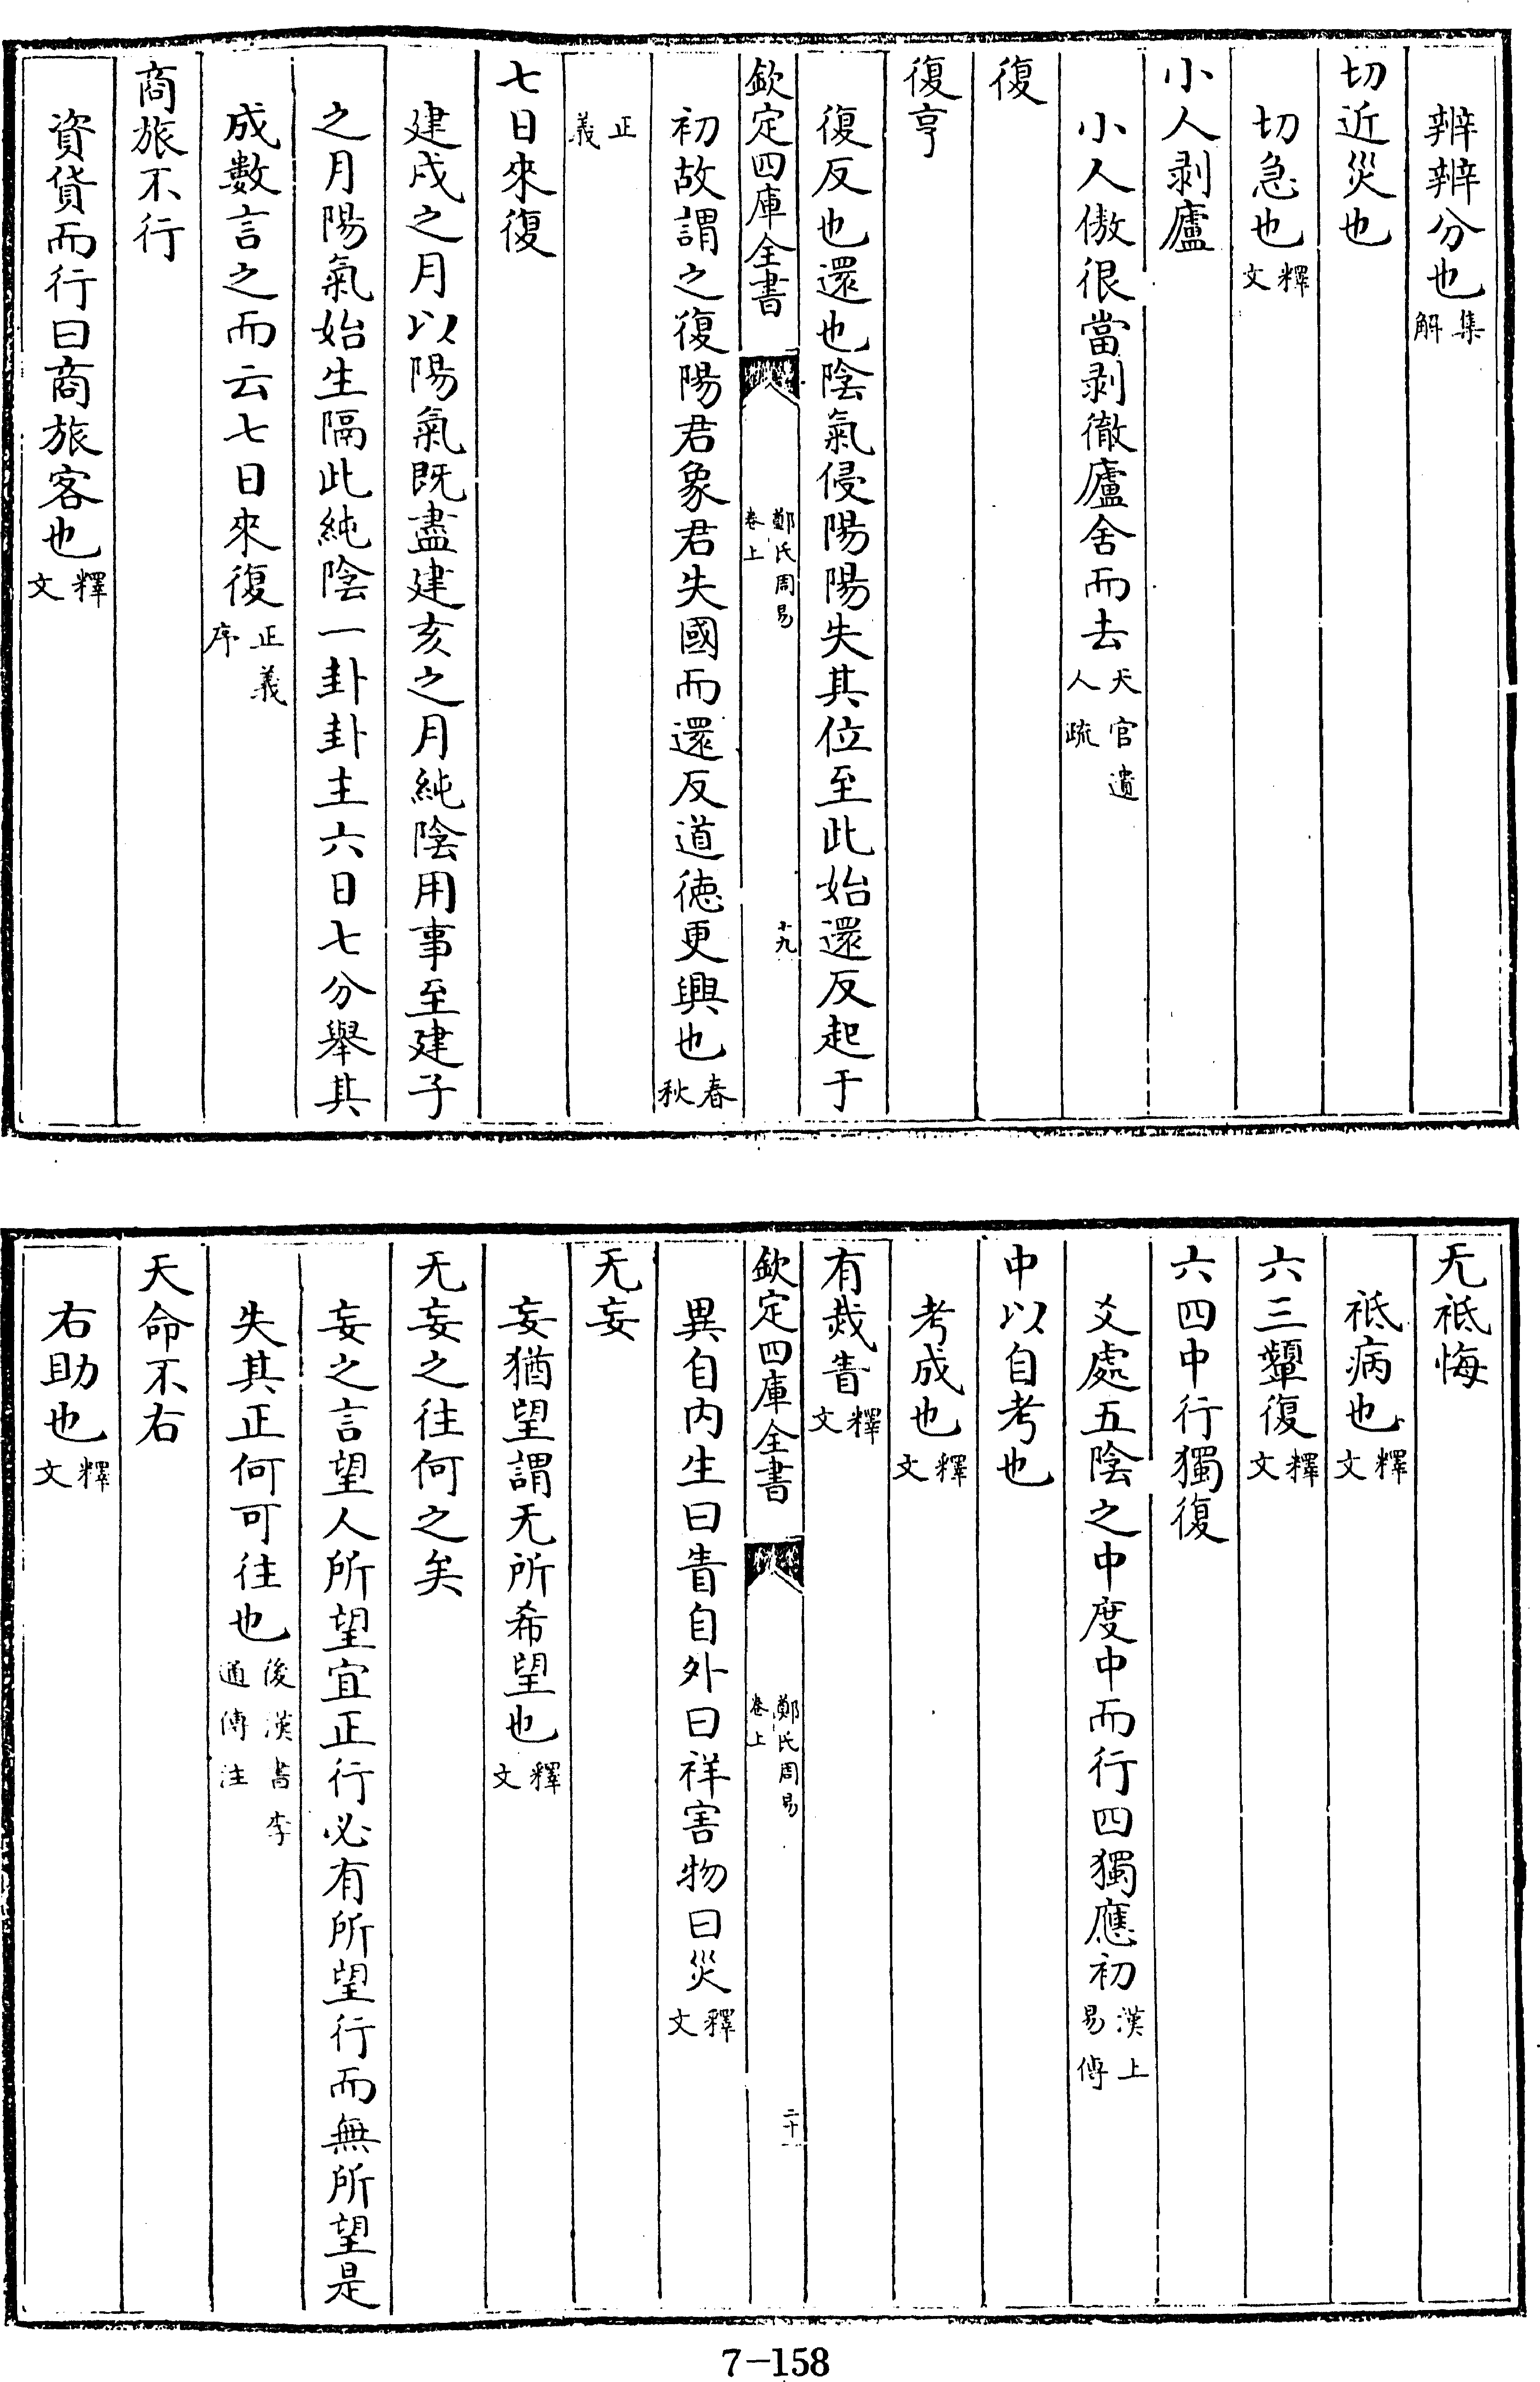 辨辨分也集解
切近災也
切急也釋文
小人剥廬
小人傲很當剥徹廬舍而去天官遺人疏
復
復亨
復反也還也陰氣侵陽陽失其位至此始還反起于
欽定四庫全書
鄭氏周易
卷上
十九
初故謂之復陽君象君失國而還反道徳更興也春秋
正義
七日來復
建戌之月以陽氣既盡建亥之月純陰用事至建子
之月陽氣始生隔此純陰一卦卦主六日七分舉其
成數言之而云七日來復正義序
商旅不行
資貨而行曰商旅客也釋文
无祗悔
祗病也釋文
六三顰復釋文
六四中行獨復
爻處五陰之中度中而行四獨應初漢上易傳
中以自考也
考成也釋文
有烖眚釋文
欽定四庫全書
鄭氏周易
卷上
二十
異自内生曰眚自外曰祥害物曰災釋文
无妄
妄猶望謂无所希望也釋文
无妄之往何之矣
妄之言望人所望宜正行必有所望行而無所望是
失其正何可往也後漢書李通傳注
天命不右
右助也釋文
7-158